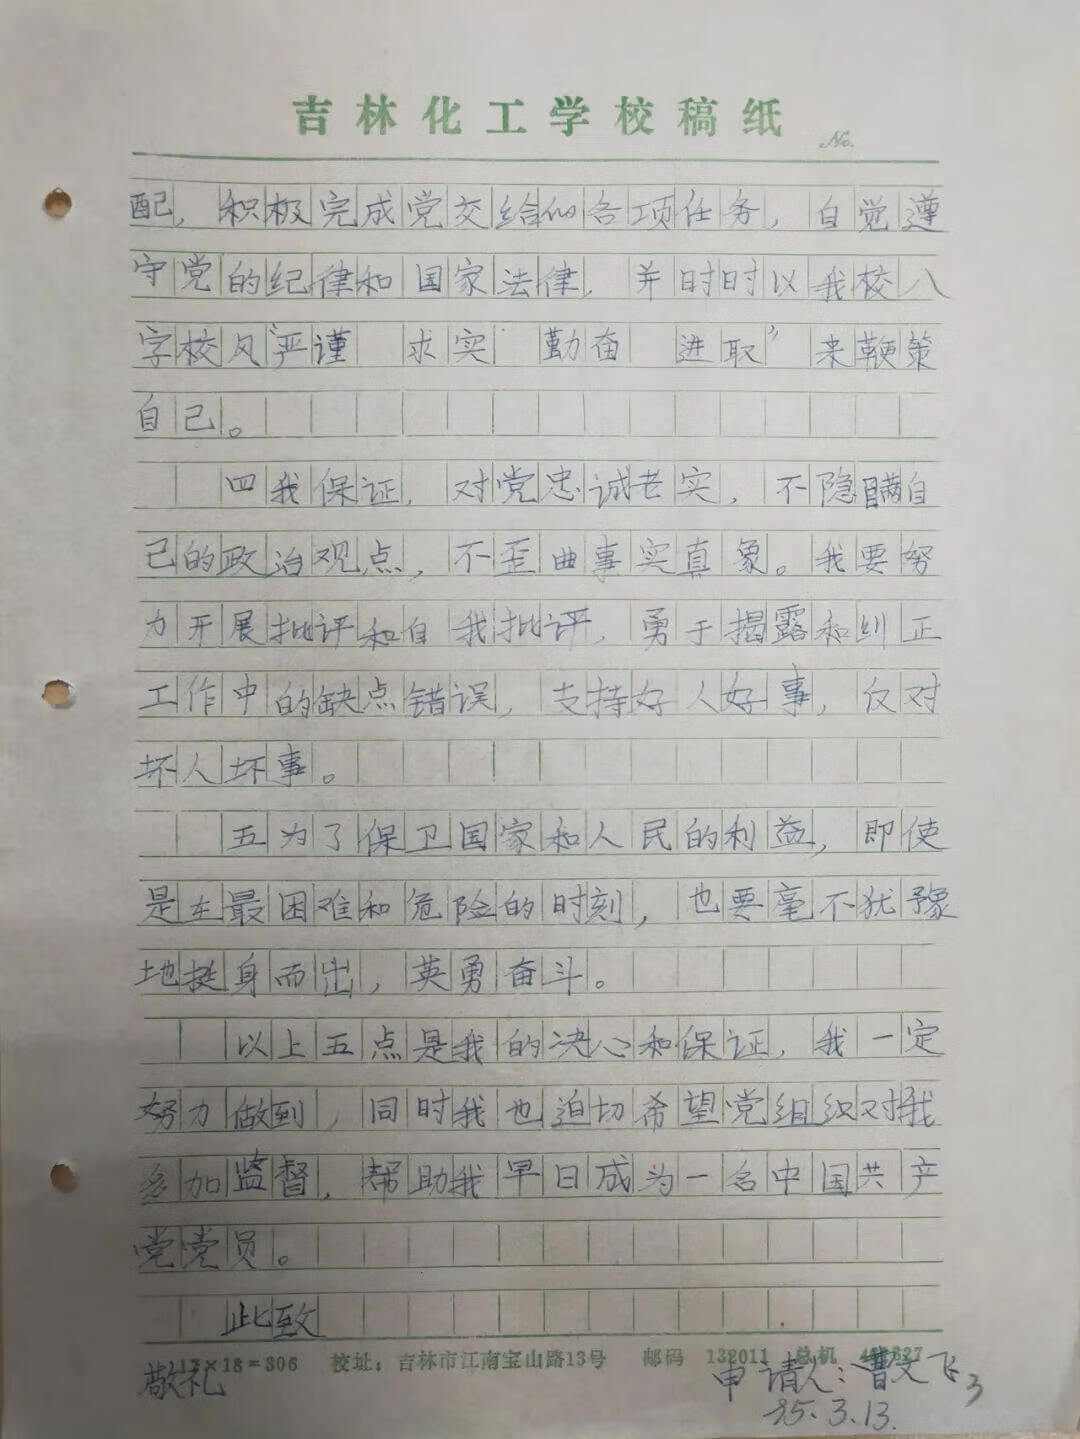 吉林化工学校稿纸
No.
配，积极完成党交给的各项任务，自觉遵
守党的纪律和国家法律，并时时以我校八
字校风“严谨 求实 勤奋 进取”来鞭策
自己。
四我保证，对党忠诚老实，不隐瞒自
己的政治观点，不歪曲事实真象。我要努
力开展批评和自我批评，勇于揭露和纠正
工作中的缺点错误，支持好人好事，反对
坏人坏事。
五为了保卫国家和人民的利益，即使
是在最困难和危险的时刻，也要毫不犹豫
地挺身而出，英勇奋斗。
以上五点是我的决心和保证，我一定
努力做到，同时我也迫切希望党组织对我
多加监督，帮助我早日成为一名中国共产
党党员。
此致
17×18=306 校址：吉林市江南宝山路13号 邮码 132011 总机
敬礼 申请人：曹文飞 3
85.3.13.